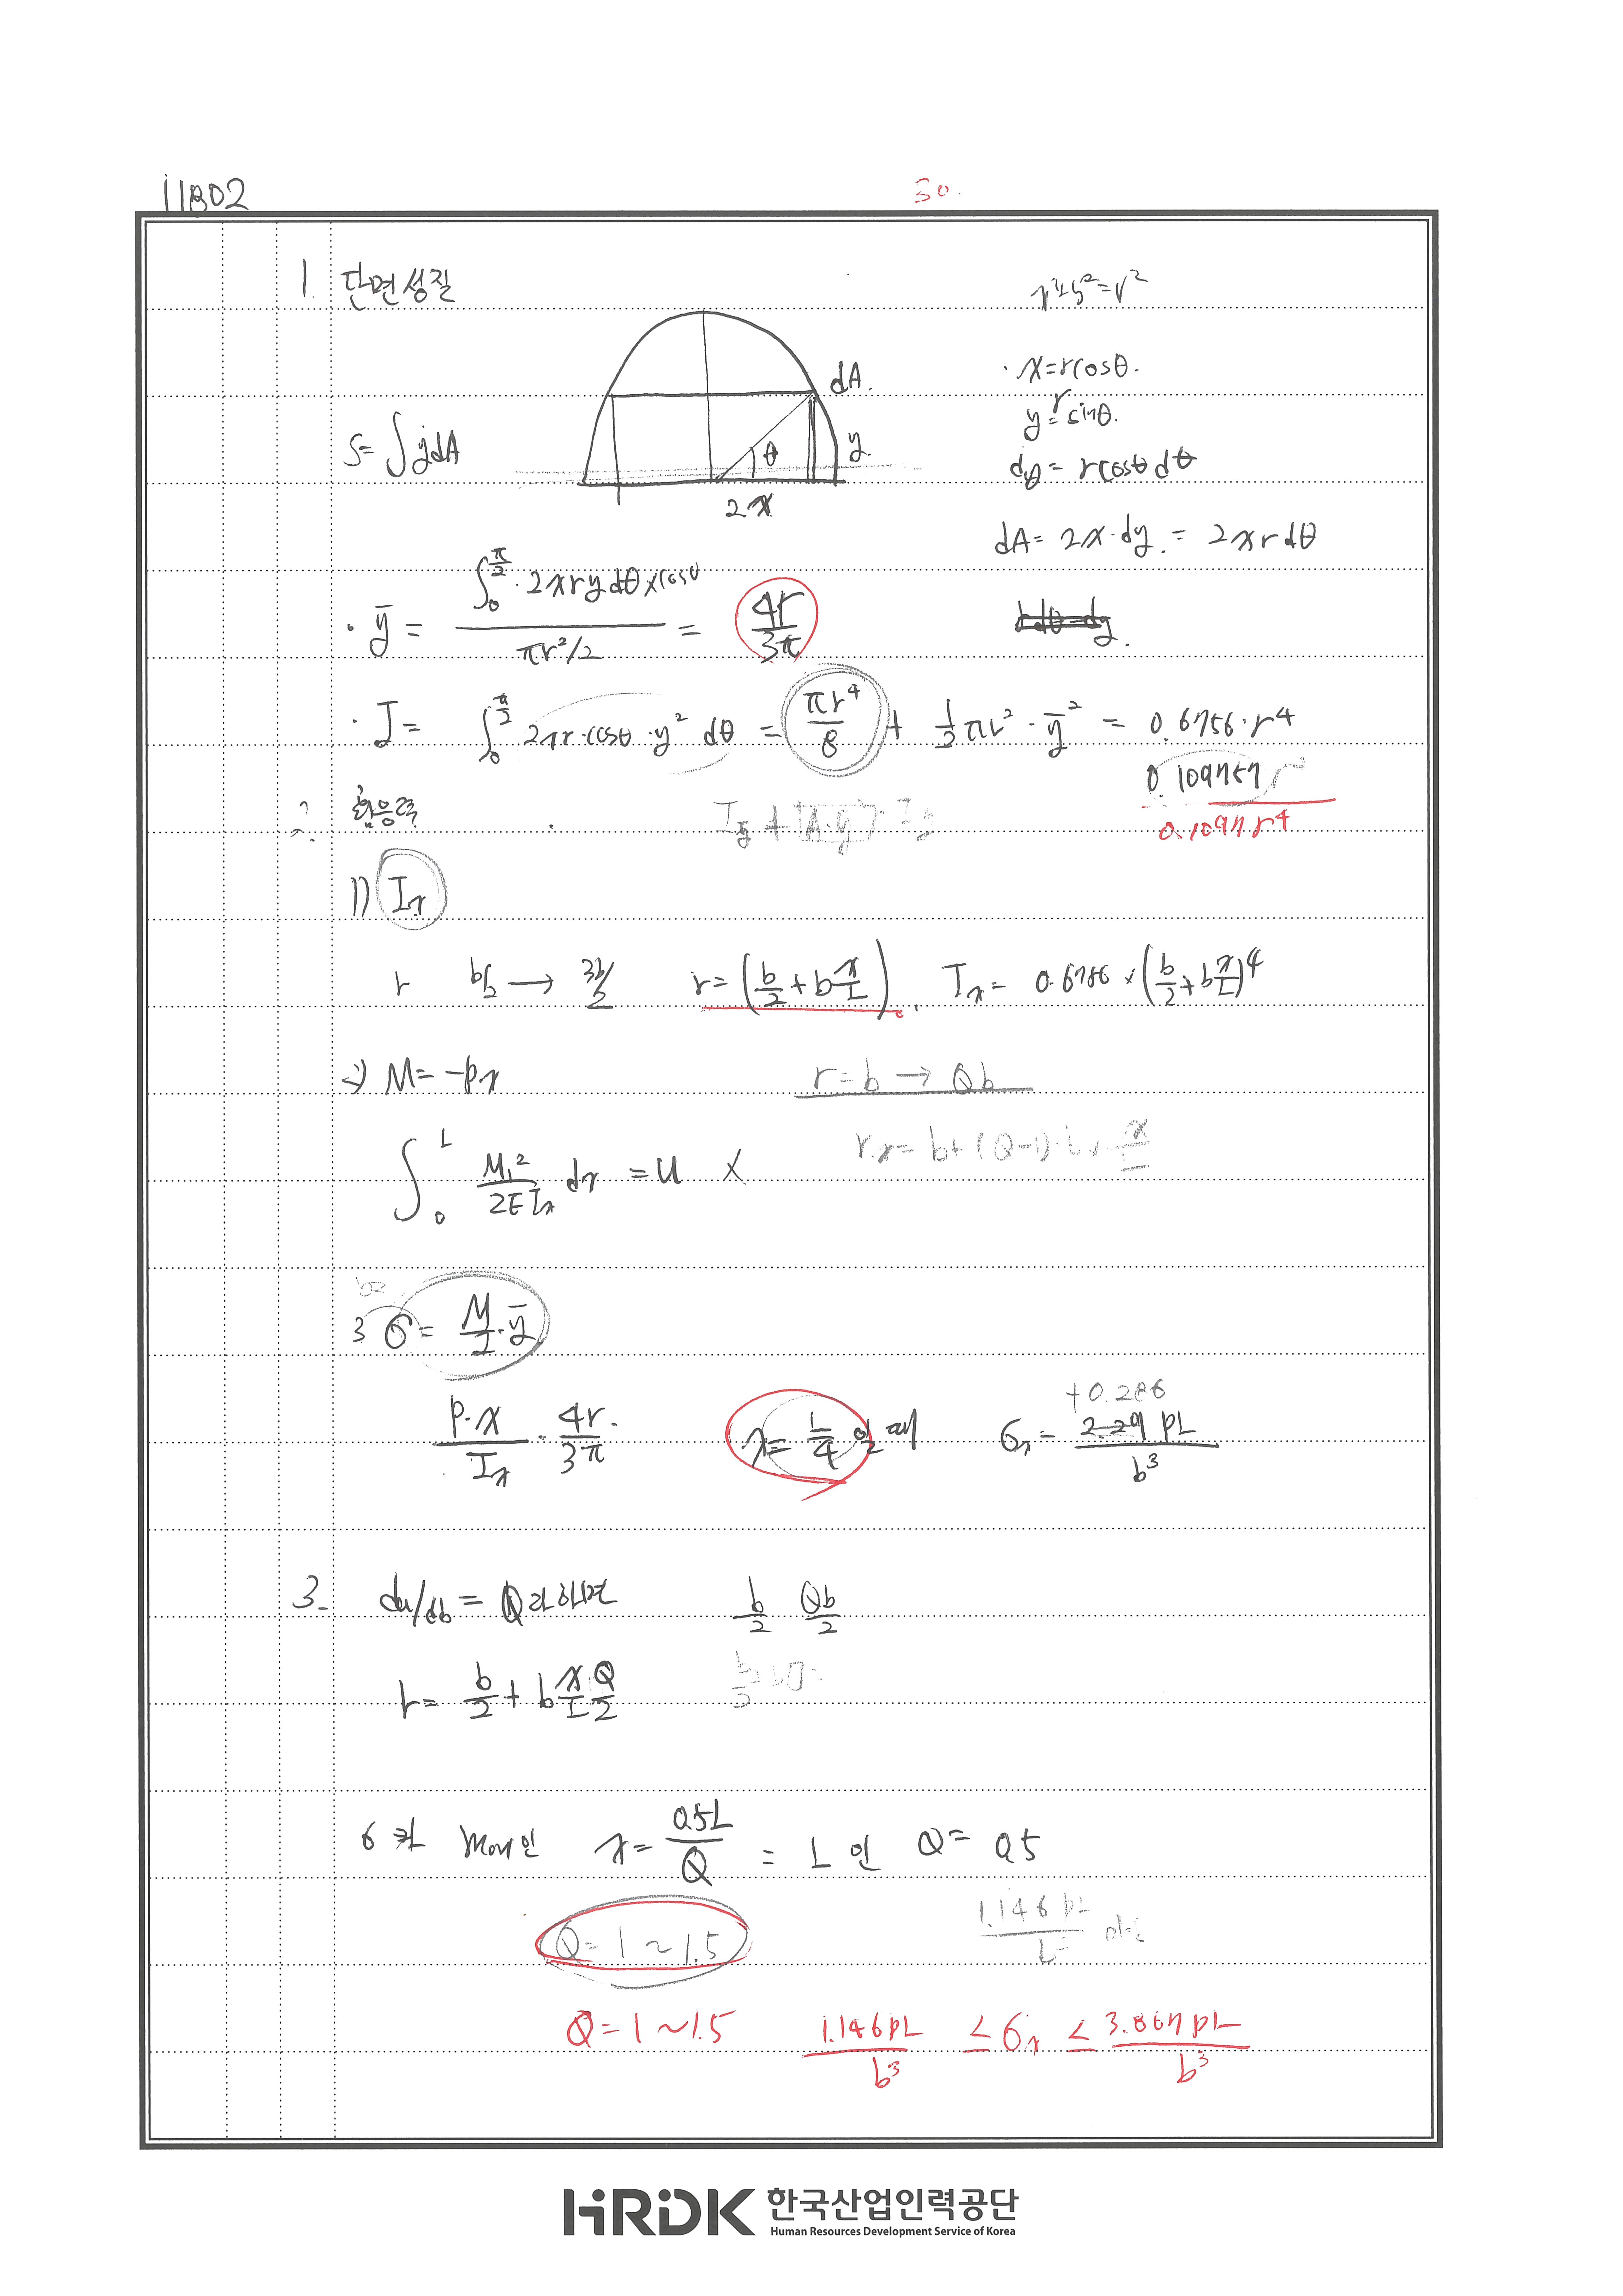 11802
50.
1. 단면성질
x²+y²=r²
dA.
· x=rcosθ.
y=rsinθ.
S=∫ydA
θ
y
dy= rcosθ dθ
2x
dA= 2x·dy. = 2xrdθ
· ȳ = ∫₀^(π/2) · 2xrydθ×cosθ / πr²/2 = 4r/3π
· I= ∫₀^(π/2) 2πr·cosθ·y² dθ = πr⁴/8 + ½πr²·ȳ² = 0.6756·r⁴
0.109757 r
0.1097r⁴
2. 휨응력
1) Ix
r b/2 → 3b/2 r=(b/2+b x/L). Ix= 0.6756×(b/2+b x/L)⁴
⇒ M=-Px
r=b → Qb
∫₀^L M₁²/2EIx dx = U X
rx= b+(Q-1)·b× x/L
3 σ= M/I·ȳ
P·x/Ix · 4r/3π x= L/4 일때 σx= 2.29 PL/b³
+0.286
3. da/db= Q라하면 b/2 Qb/2
r= b/2+b x/L Q/2
σ가 max인 x= 0.5L/Q = L 인 Q= 0.5
Q=1~1.5
1.146 PL/b³
Q=1~1.5 1.146PL/b³ ≤σx≤ 3.867PL/b³
HRDK 한국산업인력공단
Human Resources Development Service of Korea